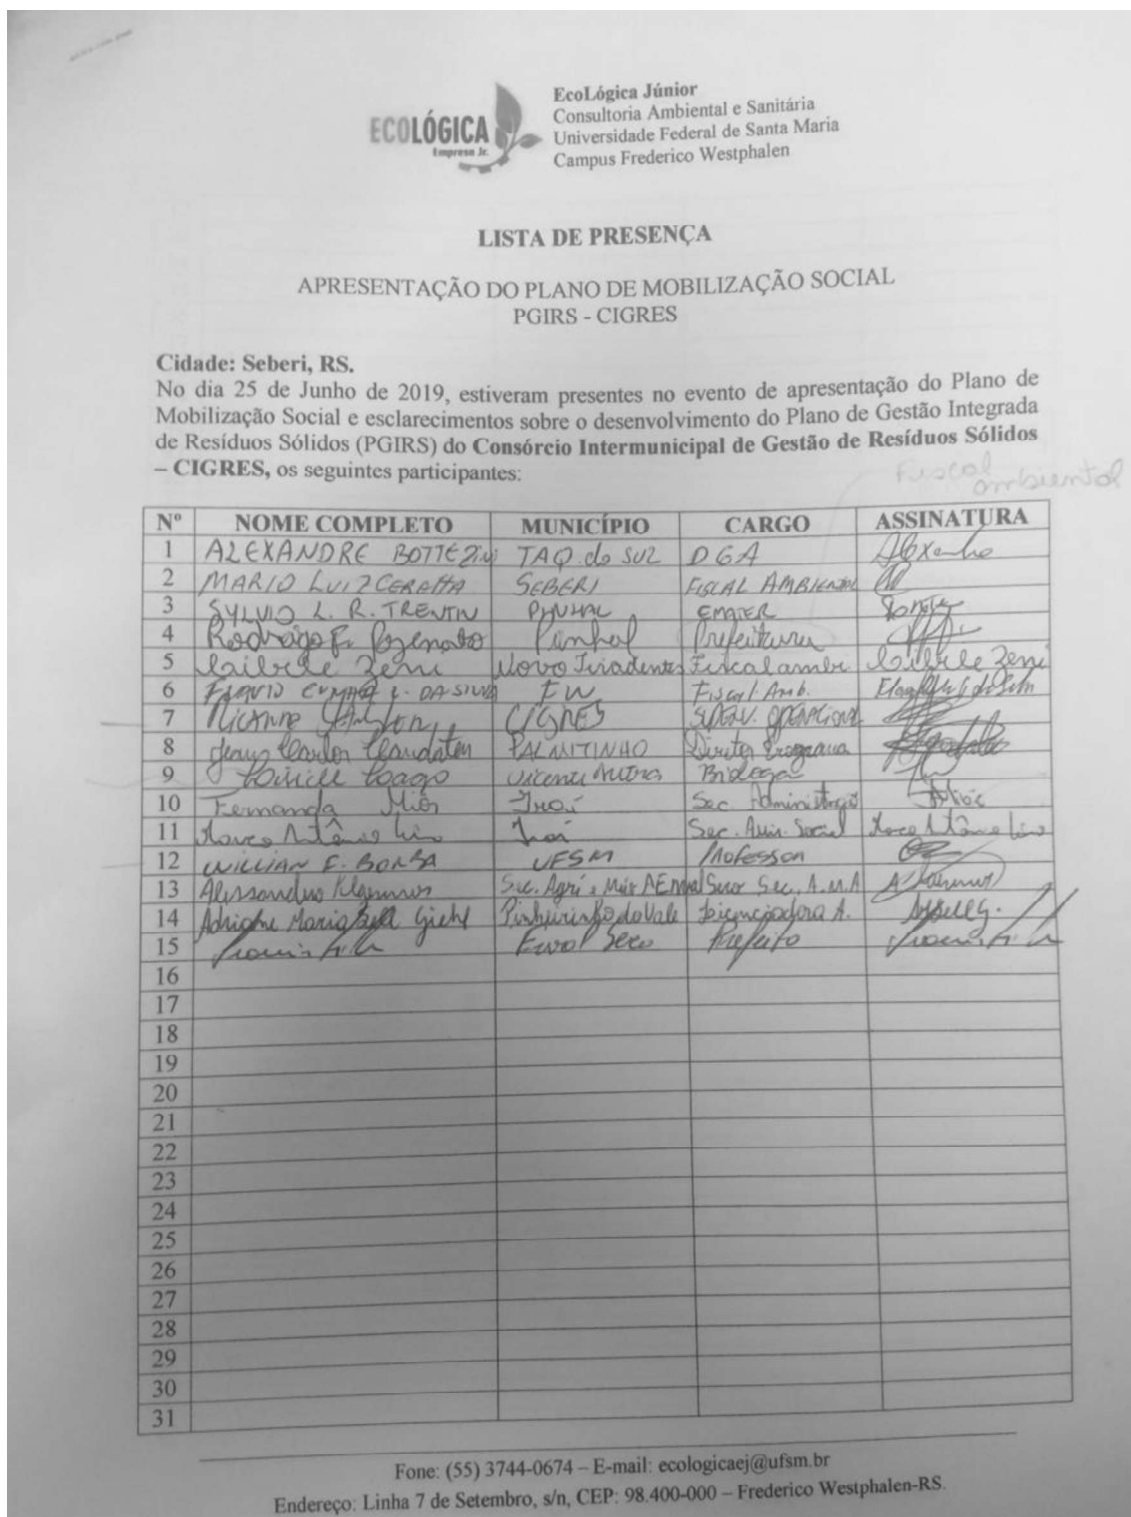 ECOLÓGICA
Empresa Jr.
EcoLógica Júnior
Consultoria Ambiental e Sanitária
Universidade Federal de Santa Maria
Campus Frederico Westphalen
LISTA DE PRESENÇA
APRESENTAÇÃO DO PLANO DE MOBILIZAÇÃO SOCIAL
PGIRS - CIGRES
Cidade: Seberi, RS.
No dia 25 de Junho de 2019, estiveram presentes no evento de apresentação do Plano de
Mobilização Social e esclarecimentos sobre o desenvolvimento do Plano de Gestão Integrada
de Resíduos Sólidos (PGIRS) do Consórcio Intermunicipal de Gestão de Resíduos Sólidos
– CIGRES, os seguintes participantes:
Fiscal
ambiental
Nº NOME COMPLETO MUNICÍPIO CARGO ASSINATURA
1 ALEXANDRE BOTTEZINI TAQ. do SUL DGA
2 MARIO LUIZ CERATTA SEBERI FISCAL AMBIENTAL
3 SYLVIO L. R. TRENTIN PINHAL EMATER
4 Rodrigo F. Pinhal Prefeitura
5 Zeni Novo Tiradentes Fiscal ambi Zeni
6 DA SILVA FW Fiscal Amb.
7 CIGRES SUPERV. OPERACIONAL
8 Carlos PALMITINHO Diretor
9 Vicente Dutra Bióloga
10 Fernanda Miós Iraí Sec. Administração
11 Marco Antônio Iraí Sec. Assis. Social Marco Antônio
12 WILLIAN F. BORBA UFSM Professor
13 Sec. Agri e Sec. A.M.A
14 Adriane Maria Giehl Pinheirinho do Vale Licenciadora A.
15 Erval Seco Prefeito
16
17
18
19
20
21
22
23
24
25
26
27
28
29
30
31
Fone: (55) 3744-0674 – E-mail: ecologicaej@ufsm.br
Endereço: Linha 7 de Setembro, s/n, CEP: 98.400-000 – Frederico Westphalen-RS.